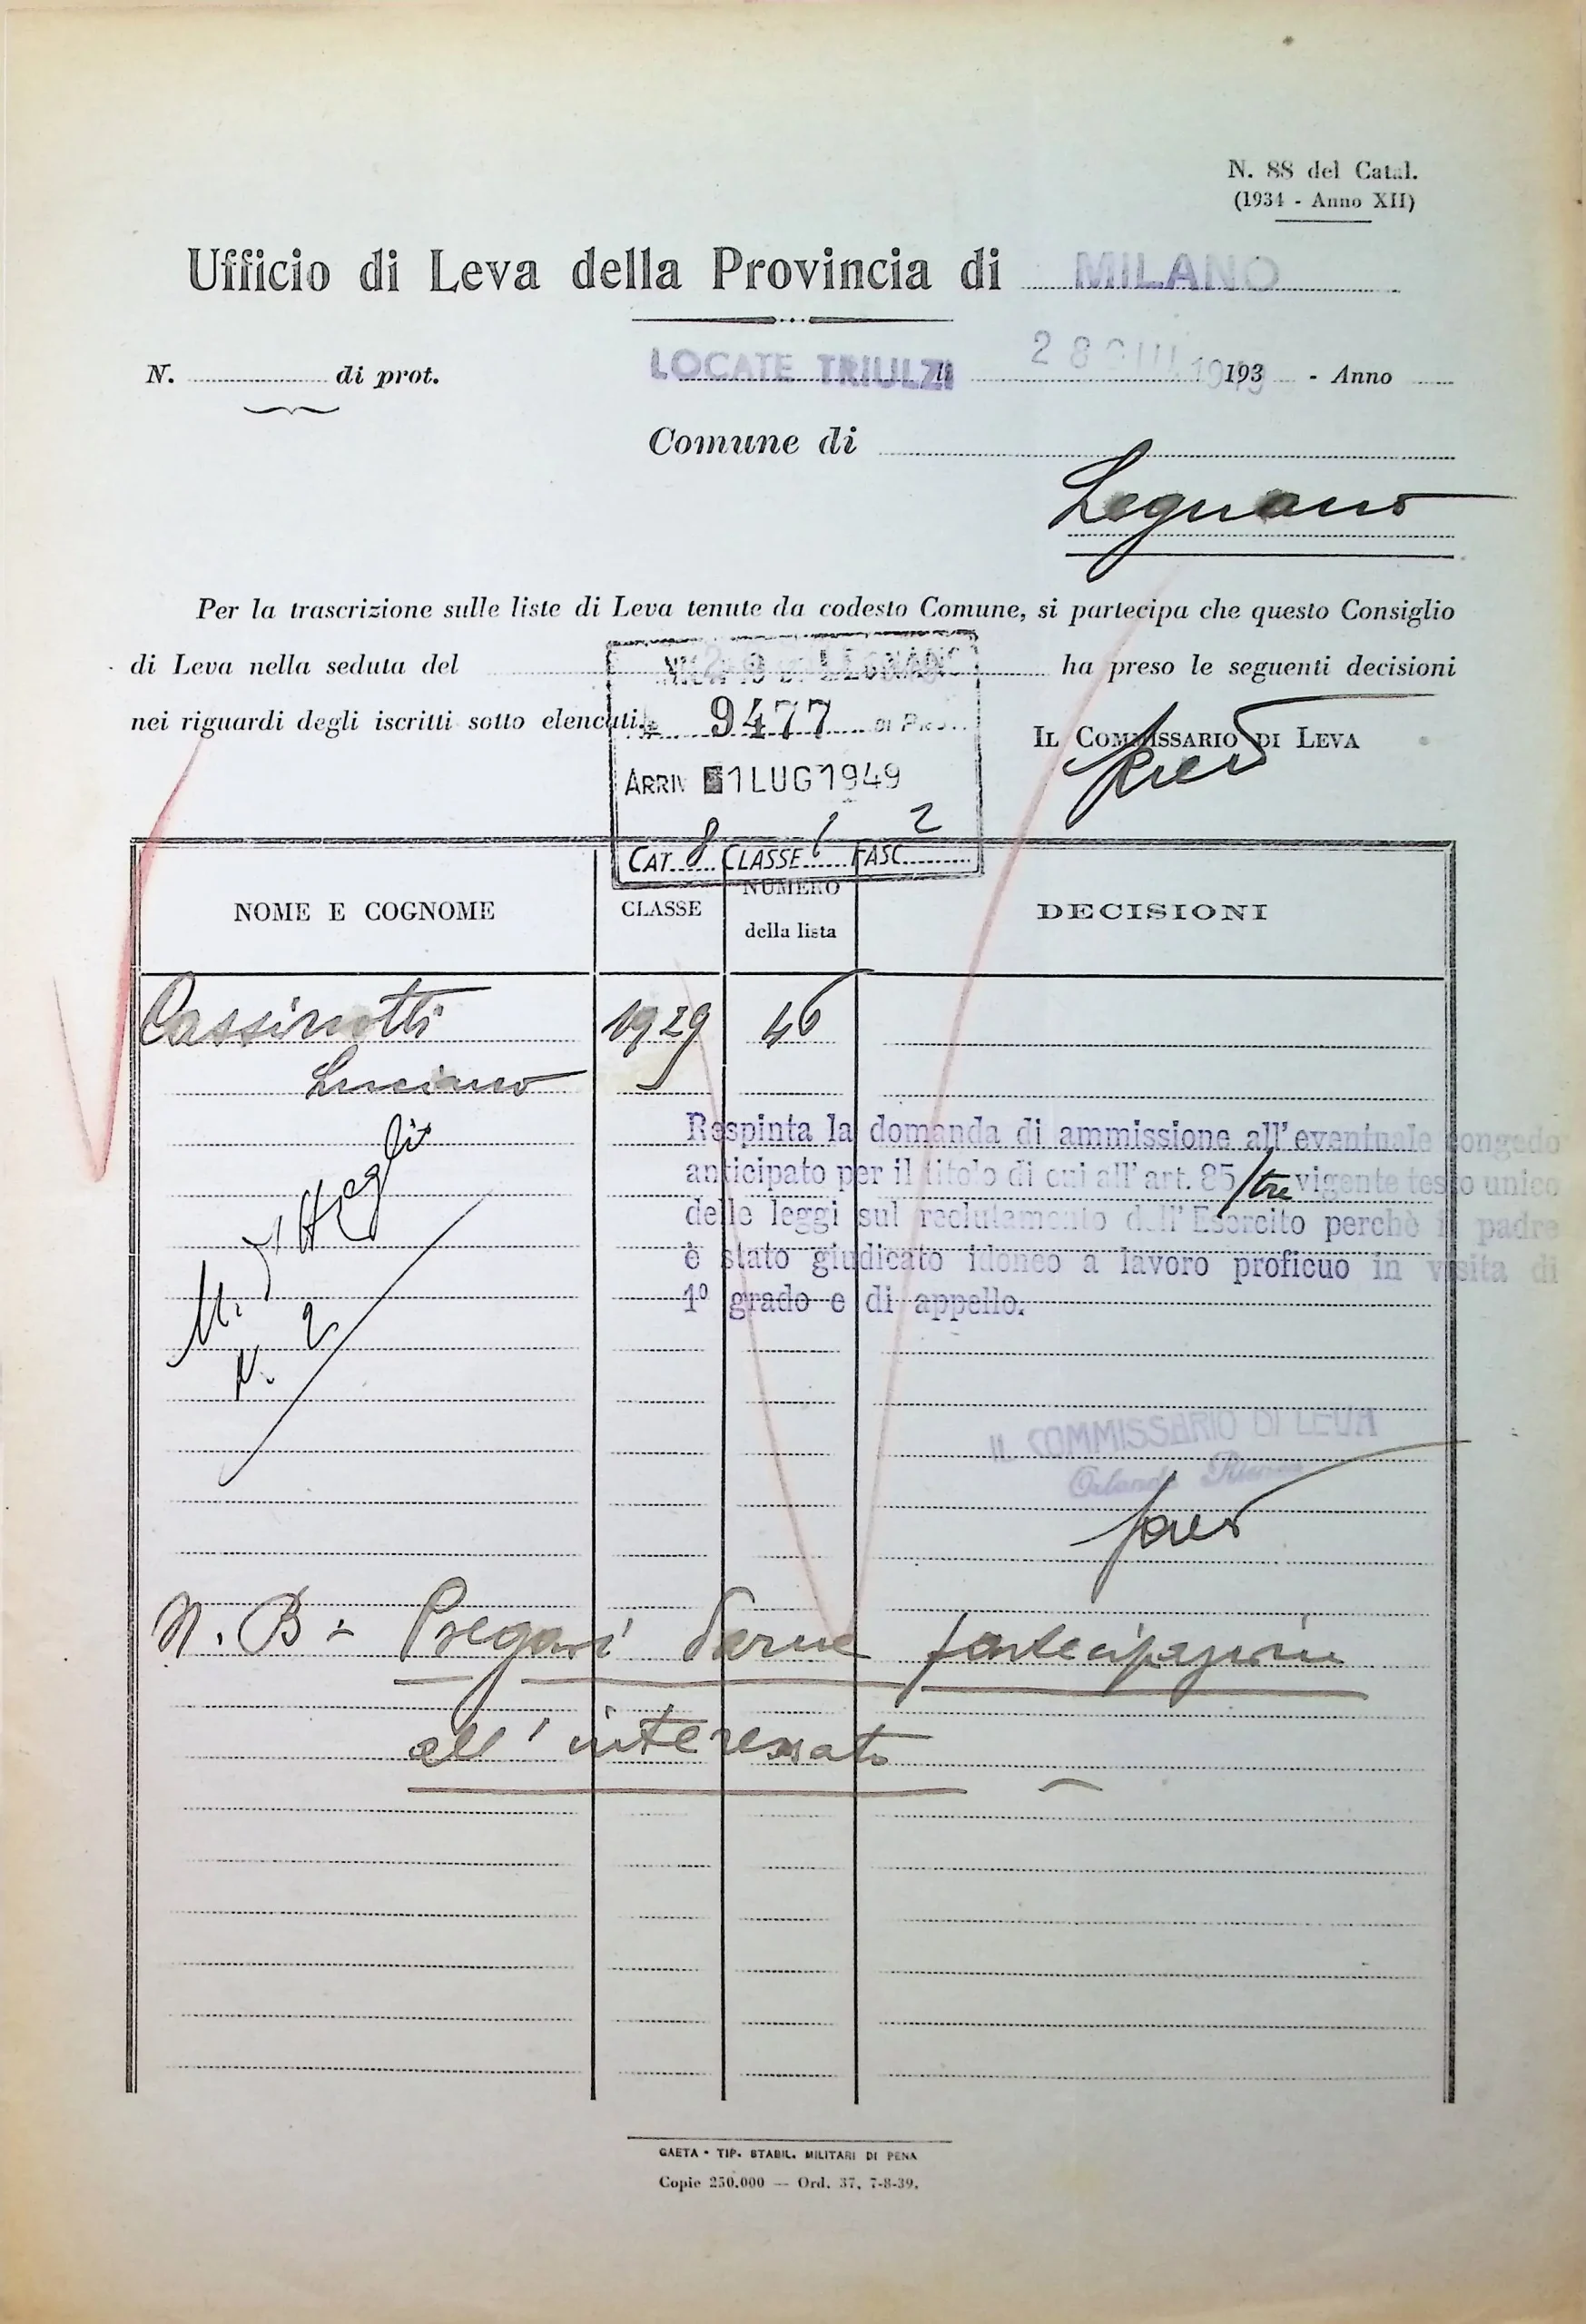 N. 88 del Catal.
(1934 - Anno XII)
Ufficio di Leva della Provincia di MILANO
N. di prot.
LOCATE TRIULZI li 28 1949 193 - Anno
Comune di
Legnano
Per la trascrizione sulle liste di Leva tenute da codesto Comune, si partecipa che questo Consiglio
di Leva nella seduta del ha preso le seguenti decisioni
nei riguardi degli iscritti sotto elencati.
LEGNANO
9477 DI PROT.
ARRIV 1 LUG 1949
CAT. 8 CLASSE 1 FASC. 2
IL COMMISSARIO DI LEVA
NOME E COGNOME
CLASSE
NUMERO
della lista
DECISIONI
Cassinotti 1929 46
Luciano
Respinta la domanda di ammissione all'eventuale congedo
anticipato per il titolo di cui all'art. 85/tre vigente testo unico
delle leggi sul reclutamento dell'Esercito perchè il padre
è stato giudicato idoneo a lavoro proficuo in visita di
1º grado e di appello.
N. 2
IL COMMISSARIO DI LEVA
N. B = Pregasi darne partecipazione
all'interessato
GAETA - TIP. STABIL. MILITARI DI PENA
Copie 250.000 — Ord. 37, 7-8-39.